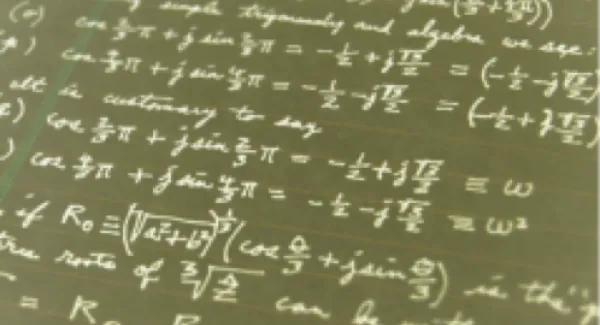 simple trigonometry and algebra we see:
(o) cos 2/3 π + j sin 2/3 π = -1/2 + j √3/2 = (-1/2 - j √3/2)
) cos 4/3 π + j sin 4/3 π = -1/2 - j √3/2 = (-1/2 + j √3/2)
it is customary to say
) cos 2/3 π + j sin 2/3 π = -1/2 + j √3/2 ≡ ω
) cos 4/3 π + j sin 4/3 π = -1/2 - j √3/2 ≡ ω²
if R₀ ≡ (√a²+b²)^1/3 (cos θ/3 + j sin θ/3) is the
roots of can be
= R₀